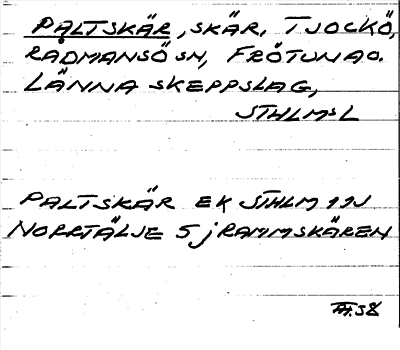 PALTSKÄR, SKÄR, TJOCKÖ,
RÅDMANSÖ SN, FRÖTUNA O.
LÄNNA SKEPPSLAG,
STHLMS L
PALTSKÄR EK STHLM
NORRTÄLJE 5 j RAMMSKÄREN